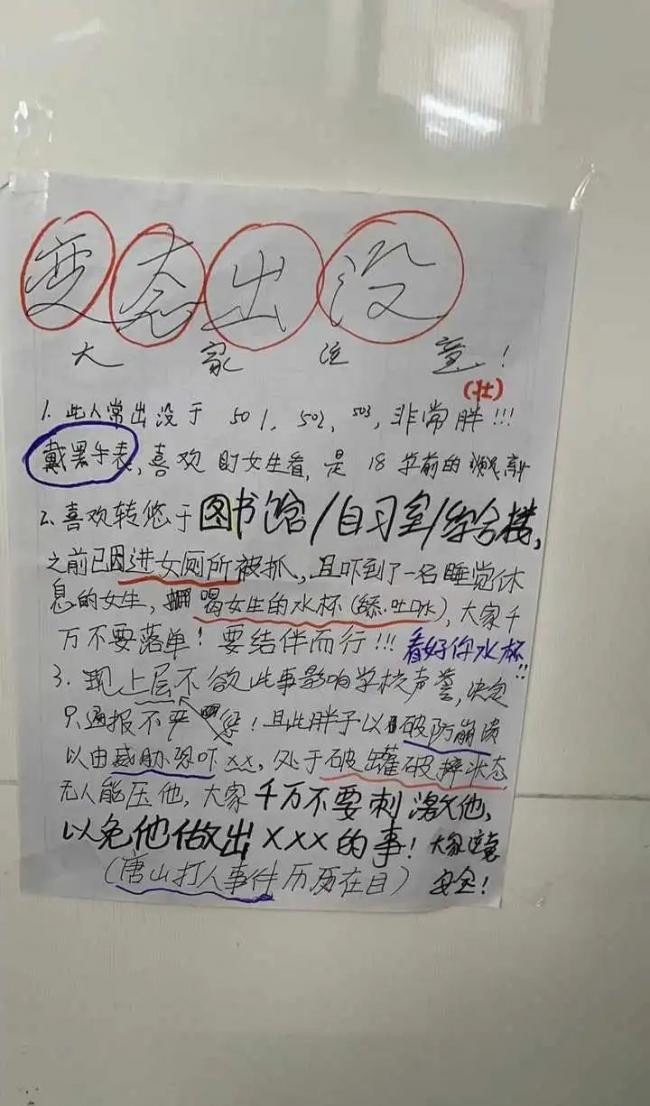 变态出没
大家注意!
(壮)
1. 此人常出没于 501, 502, 503, 非常胖!!!
戴黑手表, 喜欢盯女生看, 是 18 学前的
2. 喜欢转悠于图书馆/自习室/综合楼,
之前已因进女厕所被抓, 且吓到了一名睡觉休
息的女生, 喝女生的水杯(舔·吐口水), 大家千
万不要落单! 要结伴而行!!! 看好你水杯!!
3. 现上层不欲此事影响学校声誉, 决定
只通报不严惩! 且此胖子以破防崩溃
以由威胁恐吓xx, 处于破罐破摔状态
无人能压他, 大家千万不要刺激他,
以免他做出XXX的事! 大家注意
(唐山打人事件历历在目) 安全!